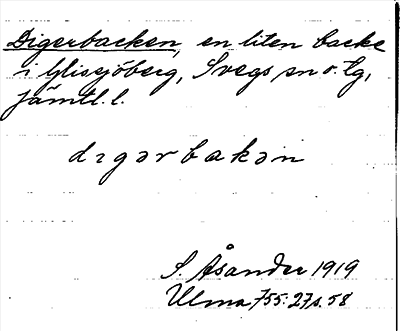 Digerbacken, en liten backe
i Glissjöberg, Svegs sn o. tg,
Jämtl. l.
dıgərbakən
S. Åsander 1919
Ulma 755:27 s. 58